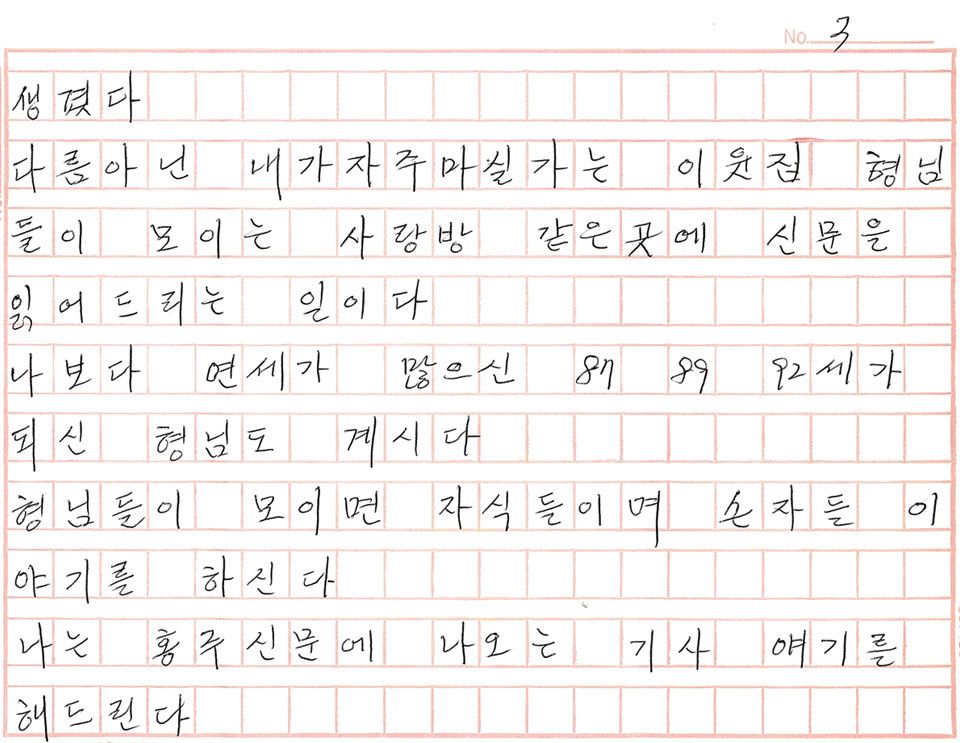 No. 3
생겼다
다름아닌 내가자주마실가는 이웃집 형님
들이 모이는 사랑방 같은곳에 신문을
읽어드리는 일이다
나보다 연세가 많으신 87 89 92세가
되신 형님도 계시다
형님들이 모이면 자식들이며 손자들 이
야기를 하신다
나는 홍주신문에 나오는 기사 얘기를
해드린다